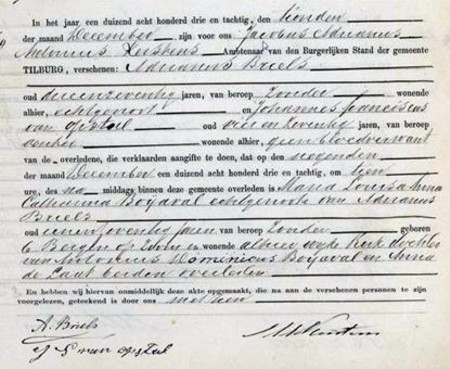 In het jaar een duizend acht honderd drie en tachtig, den tienden
der maand December zijn voor ons Jacobus Adrianus
Antonius Kerstens Ambtenaar van den Burgerlijken Stand der gemeente
TILBURG, verschenen: Adrianus Briels
oud drieenzeventig jaren, van beroep Zonder wonende
alhier, echtgenoot en Johannes franciscus
van Opstal oud vier en zeventig jaren, van beroep
wonende alhier, geen bloedverwant
van de overledene, die verklaarden aangifte te doen, dat op den negenden
der maand December een duizend acht honderd drie en tachtig, om tien
ure, des na middags binnen deze gemeente overleden is Maria Louisa Anna
Catharina Boyaval echtgenoote van Adrianus
Briels
oud jaren van beroep Zonder geboren
te Bergen op Zoom en wonende alhier wijk Kerk dochter
van Antonius Dominicus Boyaval en Anna
de Laat beiden overleden
En hebben wij hiervan onmiddellijk deze akte opgemaakt, die na aan de verschenen personen te zijn
voorgelezen, geteekend is door ons met hen
A. Briels
J F van Opstal